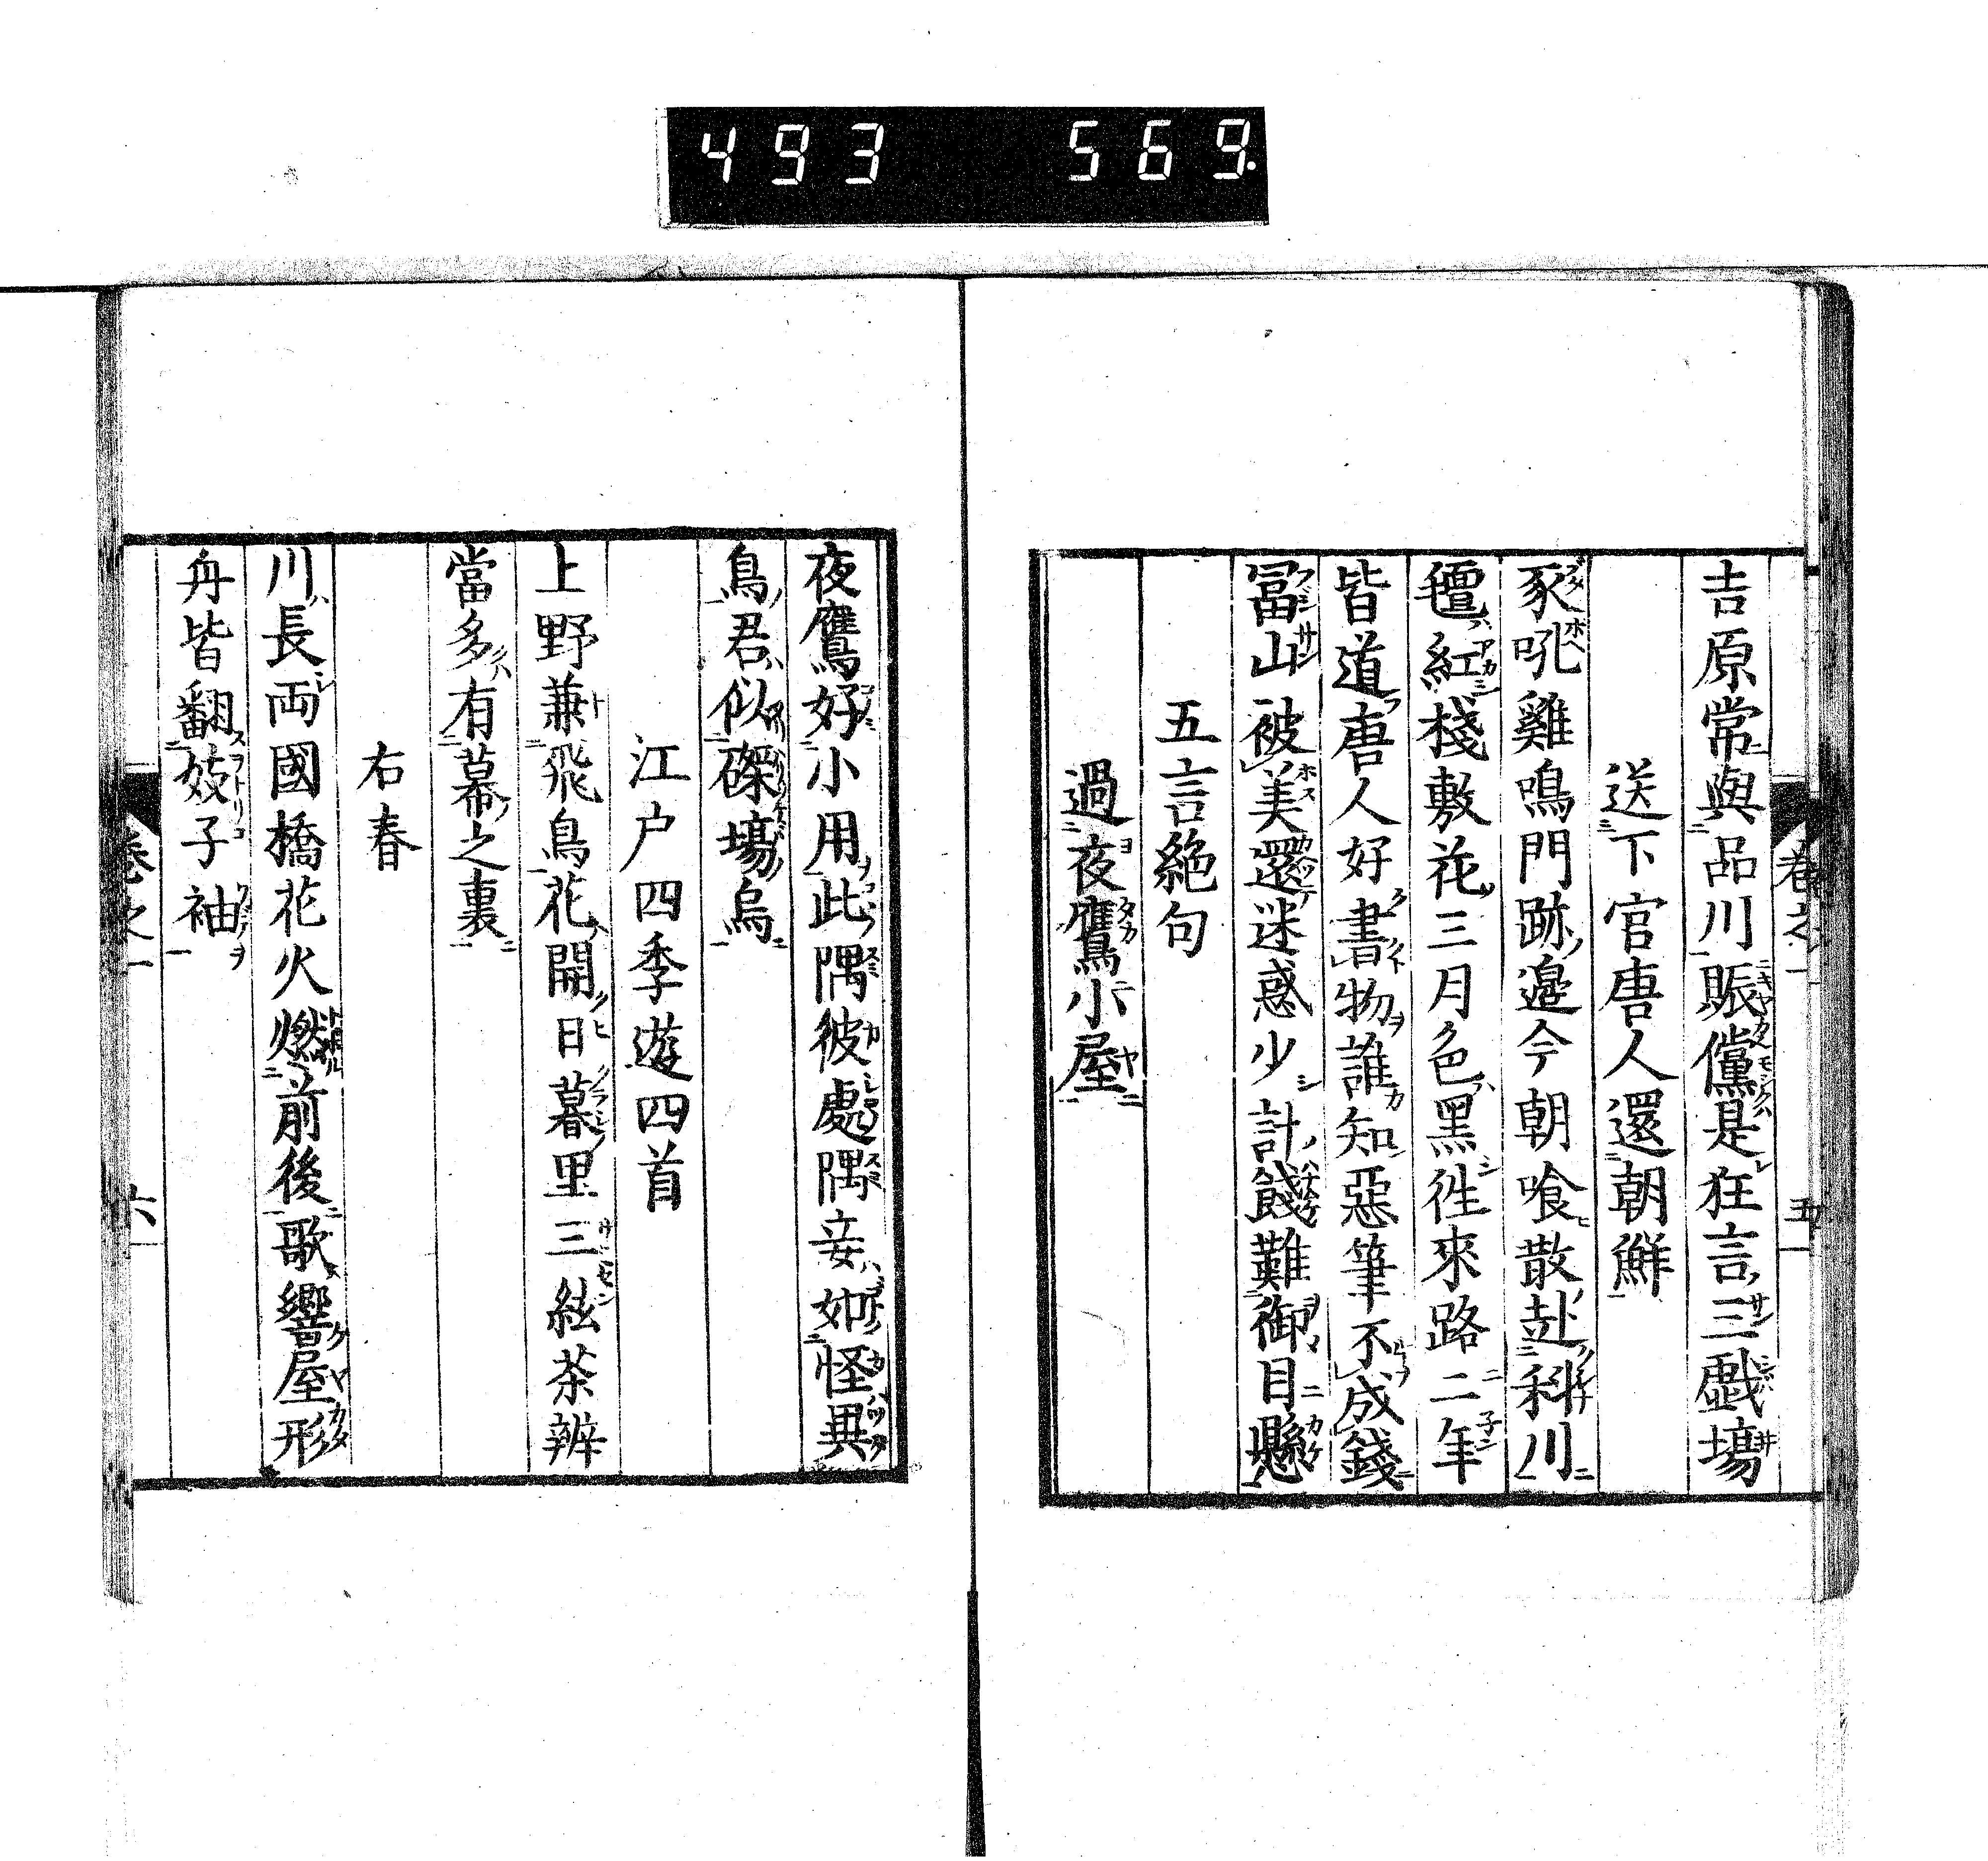 493 569.
卷之一 五
吉原常與品川賑儻是狂言三戲場
送下官唐人還朝鮮
豕吼雞鳴門跡邊今朝喰散赴科川
氊紅棧敷花三月色黑徃來路二年
皆道唐人好書物誰知惡筆不成錢
冨山被美還迷惑少計餞難御目懸
五言絶句
過夜鷹小屋
夜鷹好小用此隅彼處隅妾如怪異
鳥君似磔塲烏
江户四季遊四首
上野兼飛鳥花開日暮里三絃茶辨
當多有幕之裏
右春
川長両國橋花火燃前後歌響屋形
舟皆翻妓子袖
卷之一 六